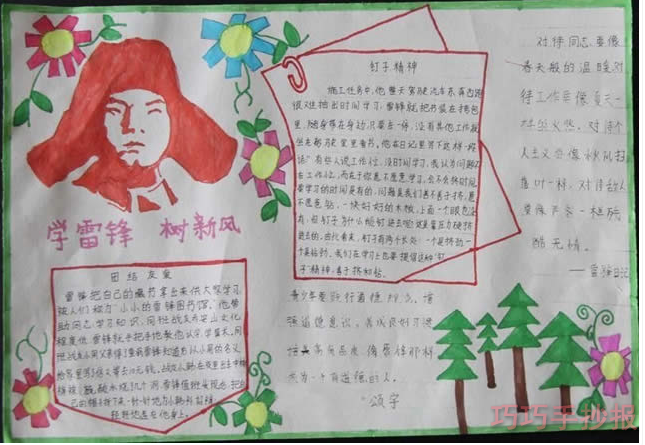 学雷锋 树新风
团结友爱
雷锋把自己的藏书拿出来供大家学习
被人们称为"小小的雷锋图书馆。他帮
助同志学习知识,同班战友乔安山文化
程度低,雷锋就手把手地教他认字,学算术,同
钉子精神
施工任务中,他整天驾驶汽车东奔西跑
很难抽出时间学习,雷锋就把书装在挎包
里,随身带在身边,只要车一停,没有其他工作就
坐在驾驶室里看书。他在日记里写下这样一段
话"有些人说工作忙,没时间学习,我认为问题不
在工作忙,而在于你愿不愿意学习,会不会挤时间
要学习的时间是有的,问题是我们善不善于挤,愿
不愿意钻。一块好好的木板,上面一个眼也没
有,但钉子为什么能钉进去呢?这就是靠压力硬挤
进去的。由此看来,钉子有两个长处:一个是挤劲,一
个是钻劲。我们在学习上也要提倡这种"钉
子"精神,善于挤和钻。
对待同志要像
春天般的温暖,对
待工作要像夏天一
对待个
人主义要像秋风扫
落叶一样,对待敌人
要像严冬一样残
酷无情。
——雷锋日记
养成良好习惯
高尚品质,像雷锋那样
成为一个有道德的人。
颂宇
巧巧手抄报